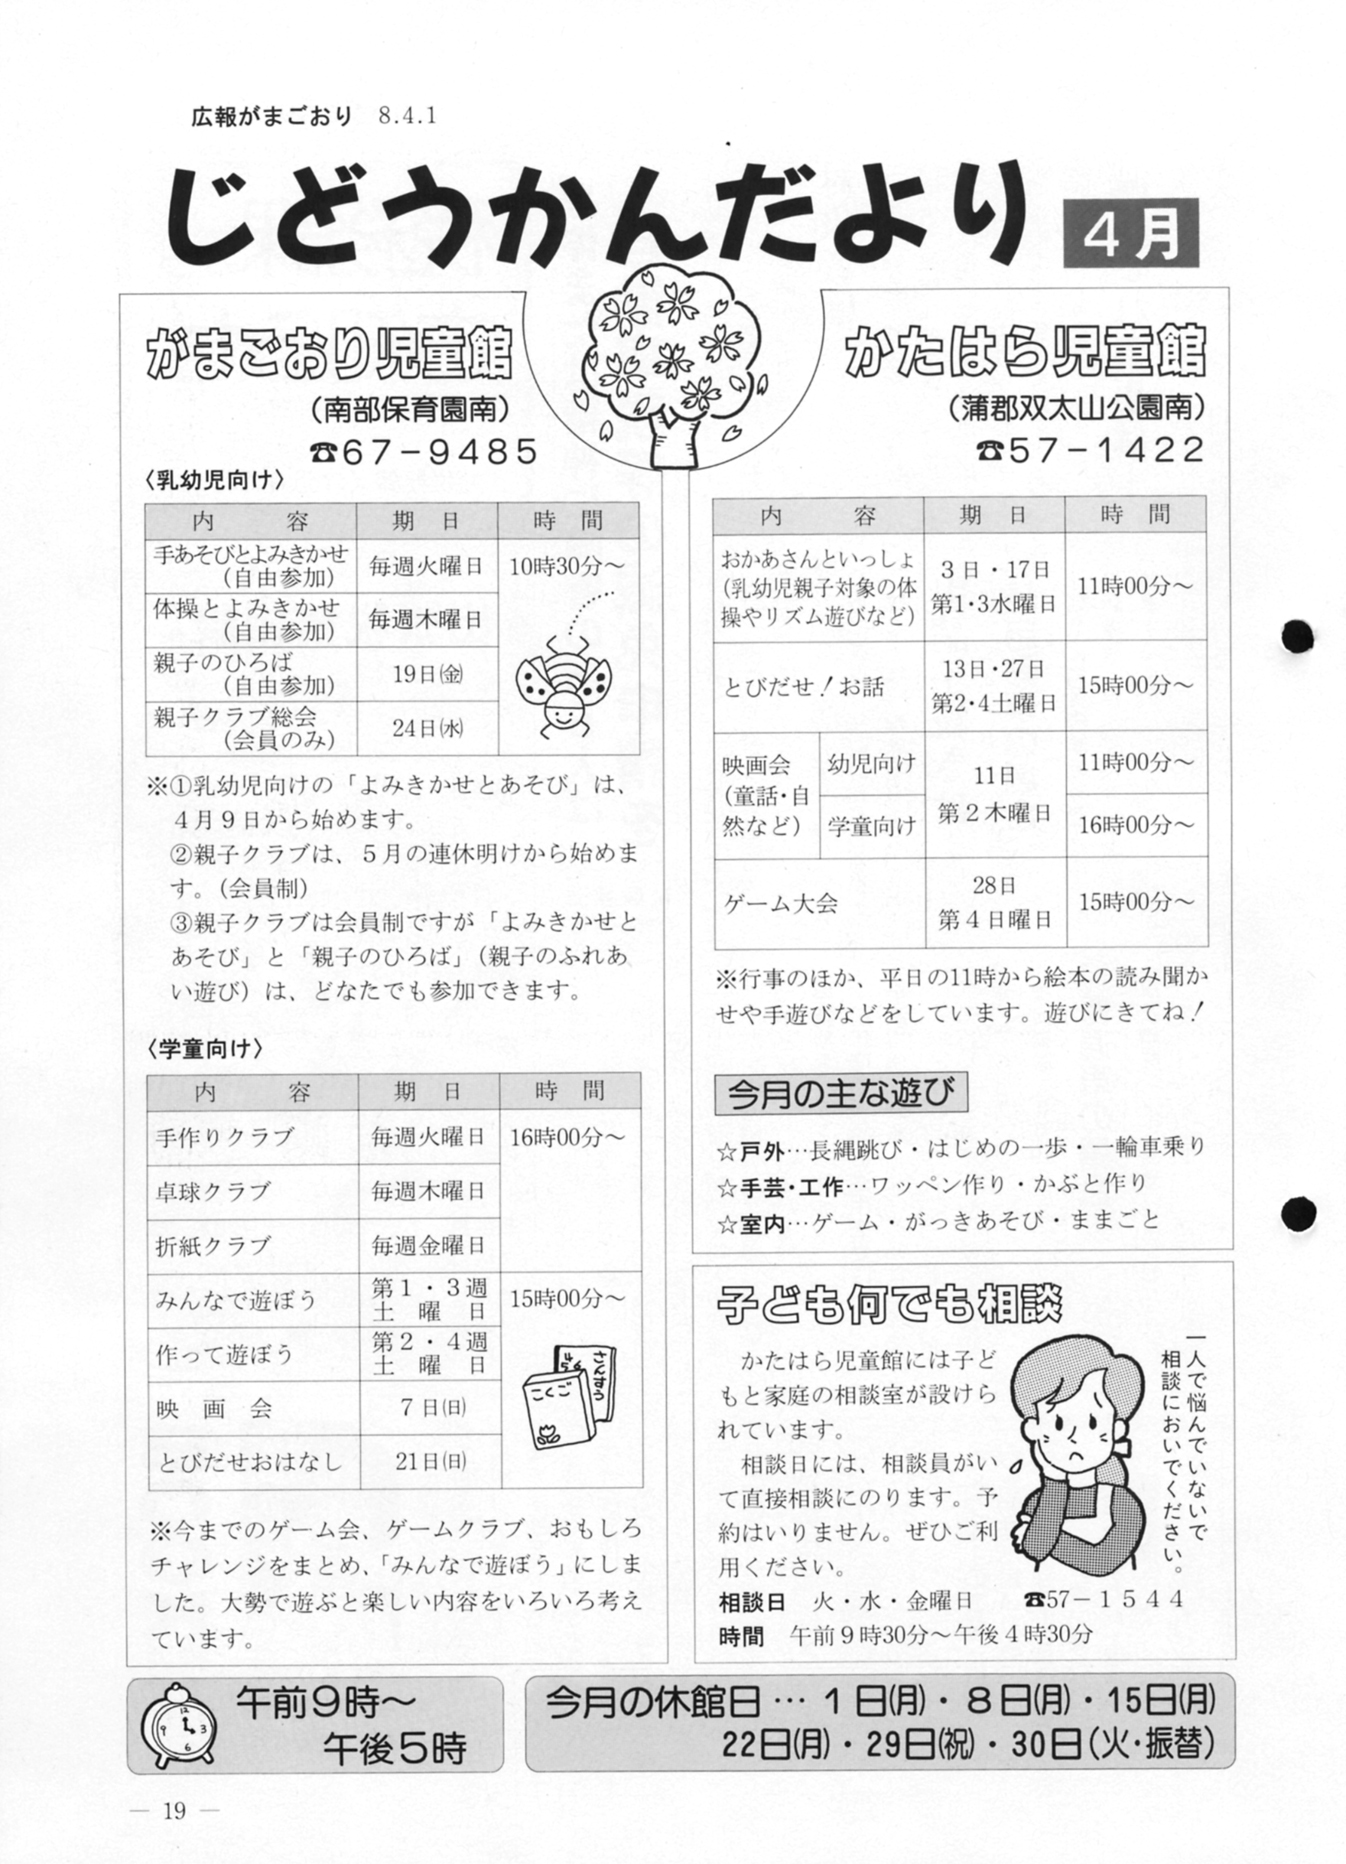 広報がまごおり 8.4.1
じどうかんだより 4月
がまごおり児童館
（南部保育園南）
☎67－9485
〈乳幼児向け〉
内容 期日 時間
手あそびとよみきかせ
（自由参加）
毎週火曜日
10時30分～
体操とよみきかせ
（自由参加）
毎週木曜日
親子のひろば
（自由参加）
19日㈮
親子クラブ総会
（会員のみ）
24日㈬
※①乳幼児向けの「よみきかせとあそび」は、
４月９日から始めます。
②親子クラブは、５月の連休明けから始めま
す。（会員制）
③親子クラブは会員制ですが「よみきかせと
あそび」と「親子のひろば」（親子のふれあ
い遊び）は、どなたでも参加できます。
〈学童向け〉
内容 期日 時間
手作りクラブ 毎週火曜日 16時00分～
卓球クラブ 毎週木曜日
折紙クラブ 毎週金曜日
みんなで遊ぼう
第１・３週
土曜日
15時00分～
作って遊ぼう
第２・４週
土曜日
映画会 ７日㈰
とびだせおはなし 21日㈰
さんすう
456
こくご
※今までのゲーム会、ゲームクラブ、おもしろ
チャレンジをまとめ、「みんなで遊ぼう」にしま
した。大勢で遊ぶと楽しい内容をいろいろ考え
ています。
かたはら児童館
（蒲郡双太山公園南）
☎57－1422
内容 期日 時間
おかあさんといっしょ
（乳幼児親子対象の体
操やリズム遊びなど）
３日・17日
第1・3水曜日
11時00分～
とびだせ！お話
13日・27日
第2・4土曜日
15時00分～
映画会
（童話・自
然など）
幼児向け
学童向け
11日
第２木曜日
11時00分～
16時00分～
ゲーム大会
28日
第４日曜日
15時00分～
※行事のほか、平日の11時から絵本の読み聞か
せや手遊びなどをしています。遊びにきてね！
今月の主な遊び
☆戸外…長縄跳び・はじめの一歩・一輪車乗り
☆手芸・工作…ワッペン作り・かぶと作り
☆室内…ゲーム・がっきあそび・ままごと
子ども何でも相談
かたはら児童館には子ど
もと家庭の相談室が設けら
れています。
相談日には、相談員がい
て直接相談にのります。予
約はいりません。ぜひご利
用ください。
一人で悩んでいないで
相談においでください。
相談日 火・水・金曜日 ☎57－1544
時間 午前９時30分～午後４時30分
12
3
6
9
午前９時～
午後５時
今月の休館日…１日㈪・８日㈪・15日㈪
22日㈪・29日㈷・30日（火・振替）
— 19 —